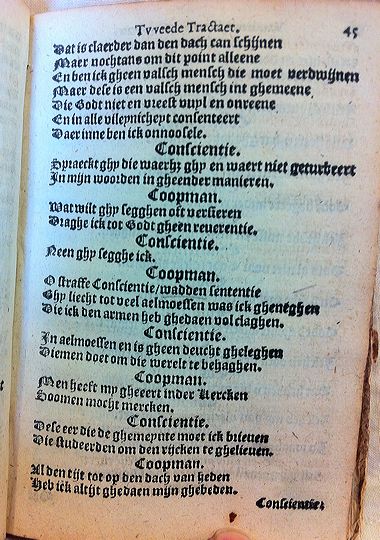 Tvveede Tractaet. 45
Dat is claerder dan den dach can schijnen
Maer nochtans om dit point alleene
En ben ick gheen valsch mensch die moet verdwijnen
Maer dese is een valsch mensch int ghemeene
Die Godt niet en vreest vuyl en onreene
En in alle vileynicheyt consenteert
Daer inne ben ick onnoosele.
Conscientie.
Spraeckt ghy die waerh; ghy en waert niet geturbeert
In mijn woorden in gheender manieren.
Coopman.
Wat wilt ghy segghen oft versieren
Draghe ick tot Godt gheen reuerentie.
Conscientie.
Neen ghy segghe ick.
Coopman.
O straffe Conscientie/wadden sententie
Ghy liecht tot veel aelmoessen was ick gheneghen
Die ick den armen heb ghedaen vol claghen.
Conscientie.
In aelmoessen en is gheen deucht gheleghen
Diemen doet om die werelt te behaghen.
Coopman.
Men heeft my gheeert inder Kercken
Soomen mocht mercken.
Conscientie.
Dese eer die de ghemeynte moet ick brieuen
Die studeerden om den rijcken te ghelieuen.
Coopman.
Al den tijt tot op den dach van heden
Heb ick altijt ghedaen mijn ghebeden.
Conscientie: